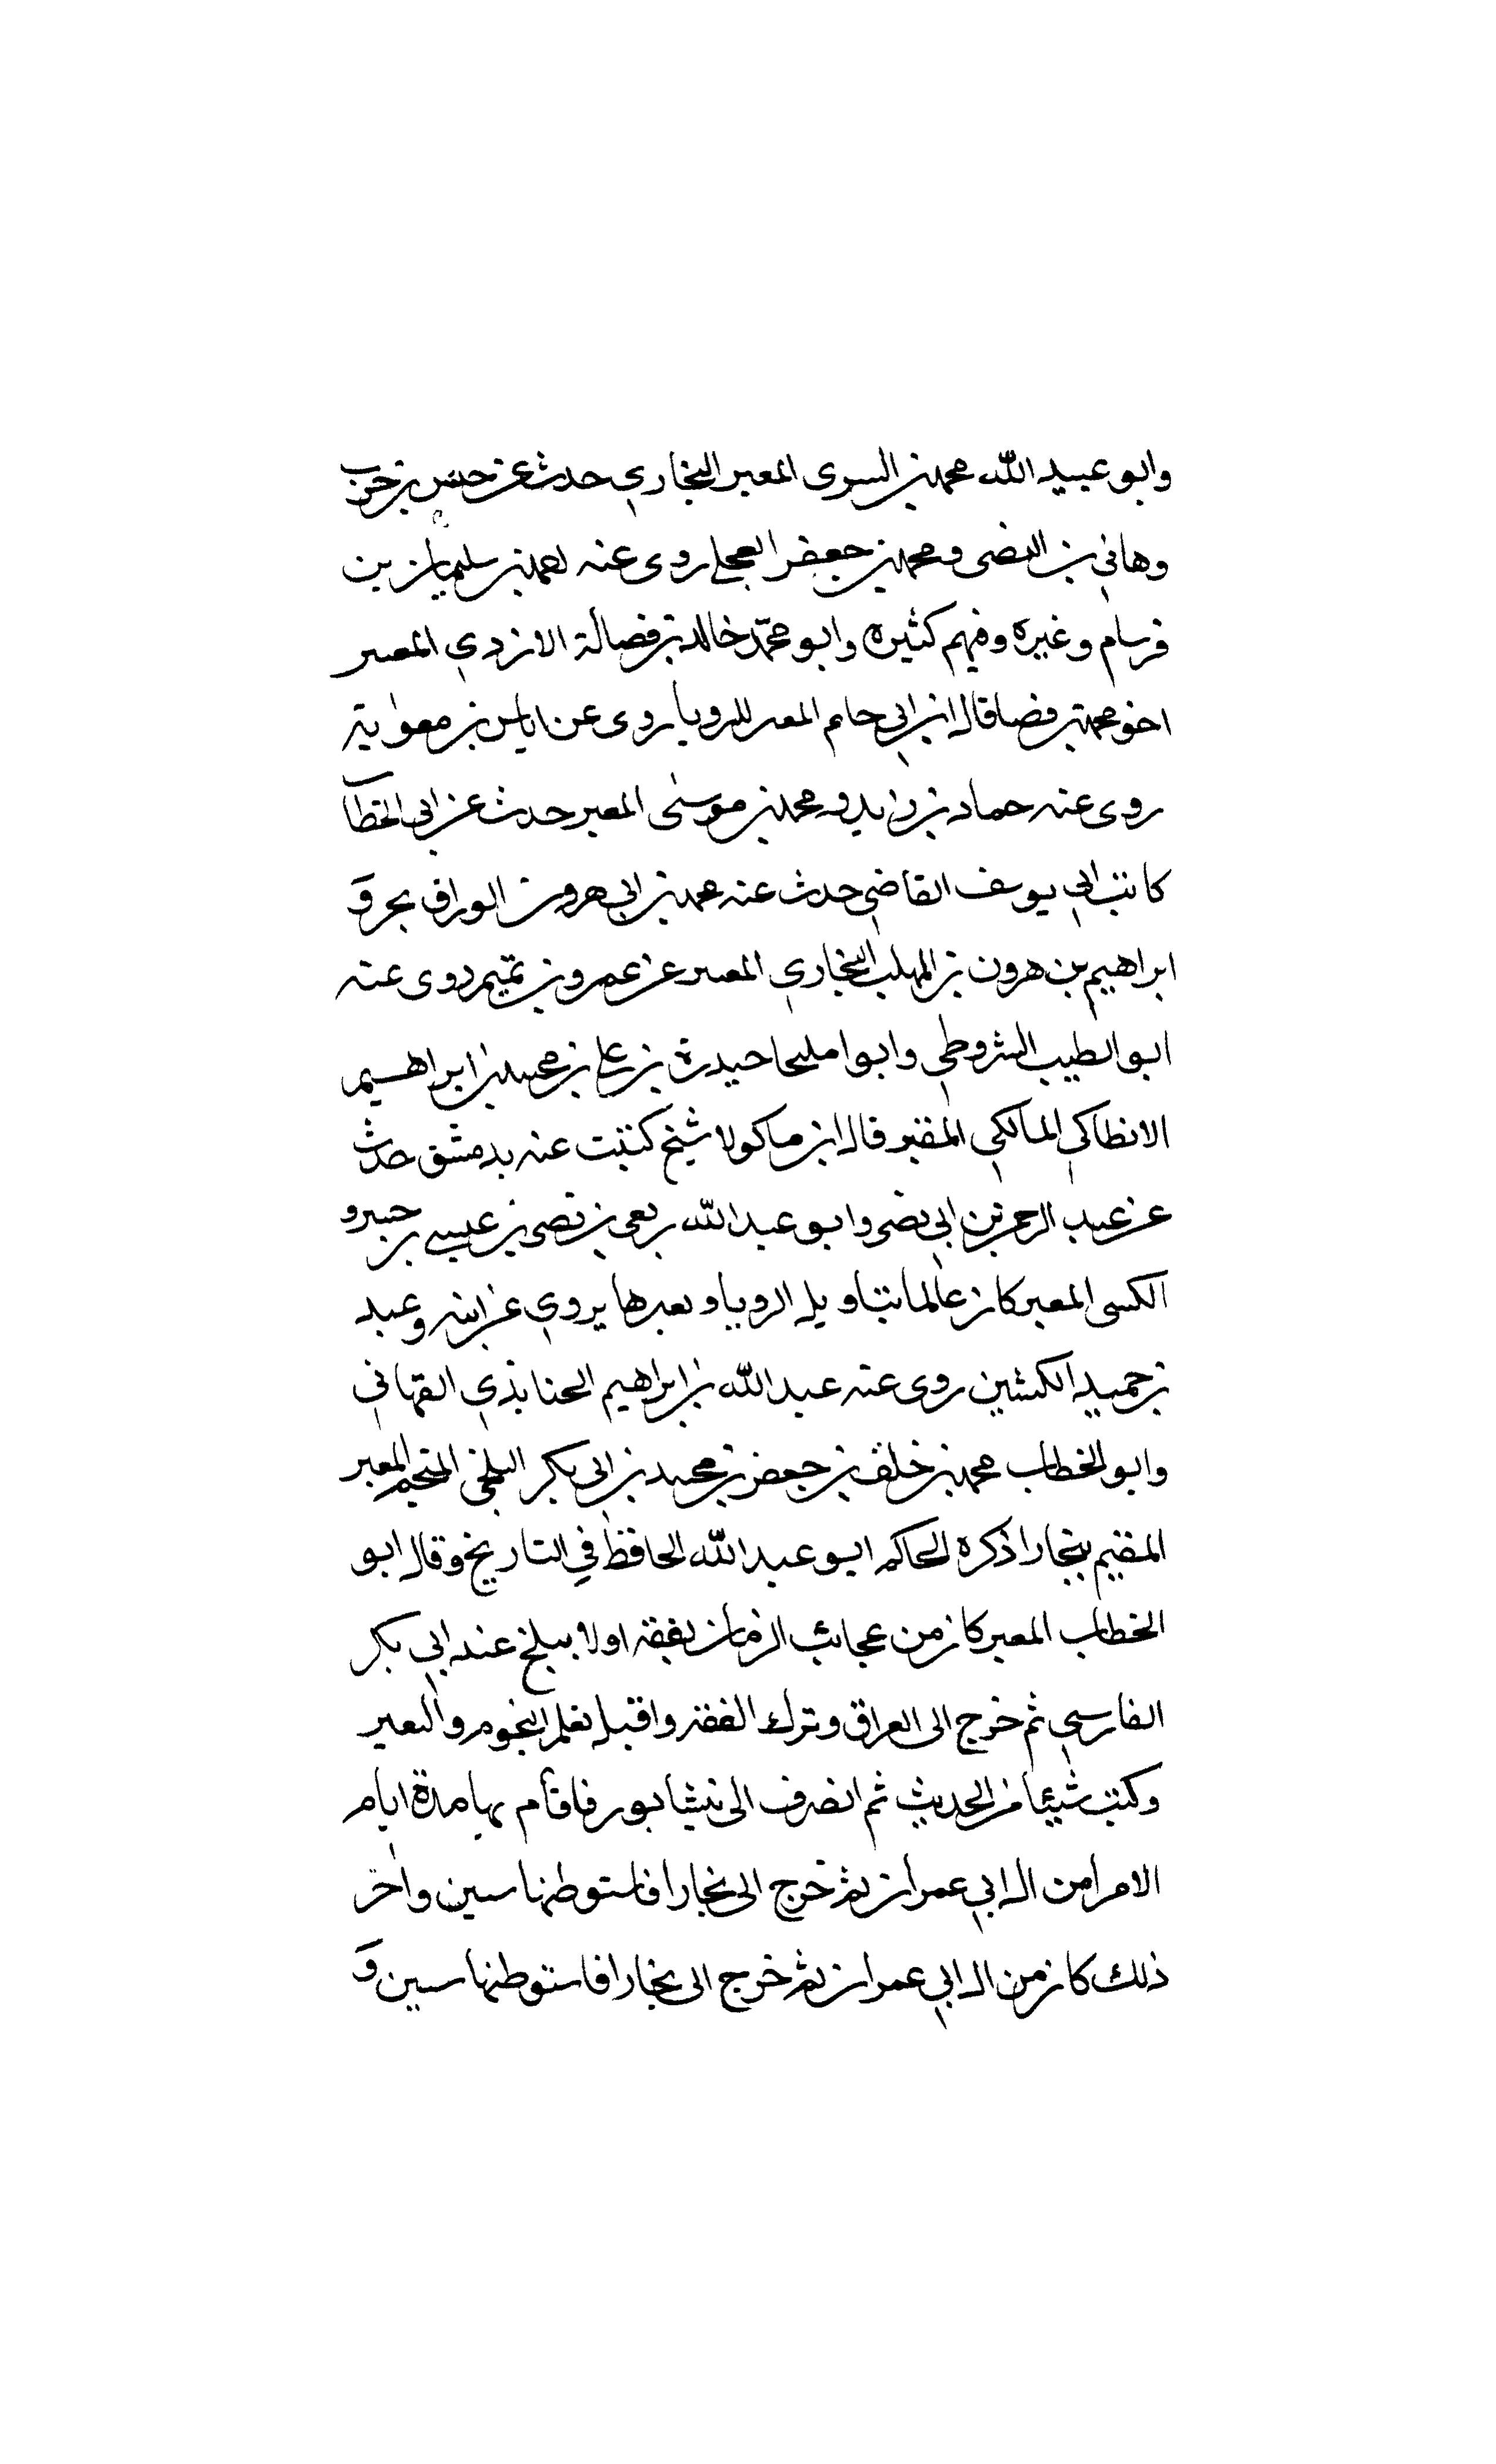 وابو عبيد الله محمد بن السرى المعبر البخاري حدث عن حسن بن حرب
وهاني بن النضر ومحمد بن جعفر العجلي روى عنه محمد بن سليمان بن
فرسام وغيره وفيهم كثيرة وابو محمد خالد بن فضالة الازدي المعبر
اخو محمد بن فضا قال ابن ابي حاتم المعبر للرويا روى عن اياس بن معوية
روى عنه حماد بن زيد ومحمد بن موسى المعبر حدث عن ابي الخطاب
كاتب ابي يوسف القاضي حدث عنه محمد بن ابي هرون الوراق بحرف و
ابراهيم بن هرون بن المهلب البخاري المعبر عن عمرو بن تميم روى عنه
ابو الطيب الشروطي وابو امليحا حيدرة بن علي بن محمد بن ابراهيم
الانطاكي المالكي المقبر قال ابن ماكولا شيخ كتبت عنه بدمشق حدث
عن عبد الرحمن بن ابي نصر وابو عبد الله ربعي بن نصر بن عيسى بن جبرو
الكسى المعبر كان عالما بتاويل الرويا وتعبيرها يروي عن ابيه وعبد
بن حميد الكشين روى عنه عبد الله بن ابراهيم الحنابذي القهاني
وابو الخطاب محمد بن خلف بن جعفر بن محمد بن ابي بكر البلخي المنجم المعبر
المقيم ببخارا ذكره الحاكم ابو عبد الله الحافظ في التاريخ وقال ابو
الخطاب المعبر كان من عجائب الزمان تفقه اولا ببلخ عند ابي بكر
الفارسي ثم خرج الى العراق وترك الفقه واقبل تعلم النجوم والتعبير
وكتب شيئا من الحديث ثم انصرف الى نيشابور فاقام بها مدة ايام
الامرا من ال ابي عمران ثم خرج الى بخارا فاستوطنها سنين واخر
ذلك كان من ال ابي عمران ثم خرج الى بخارا فاستوطنها سنين و